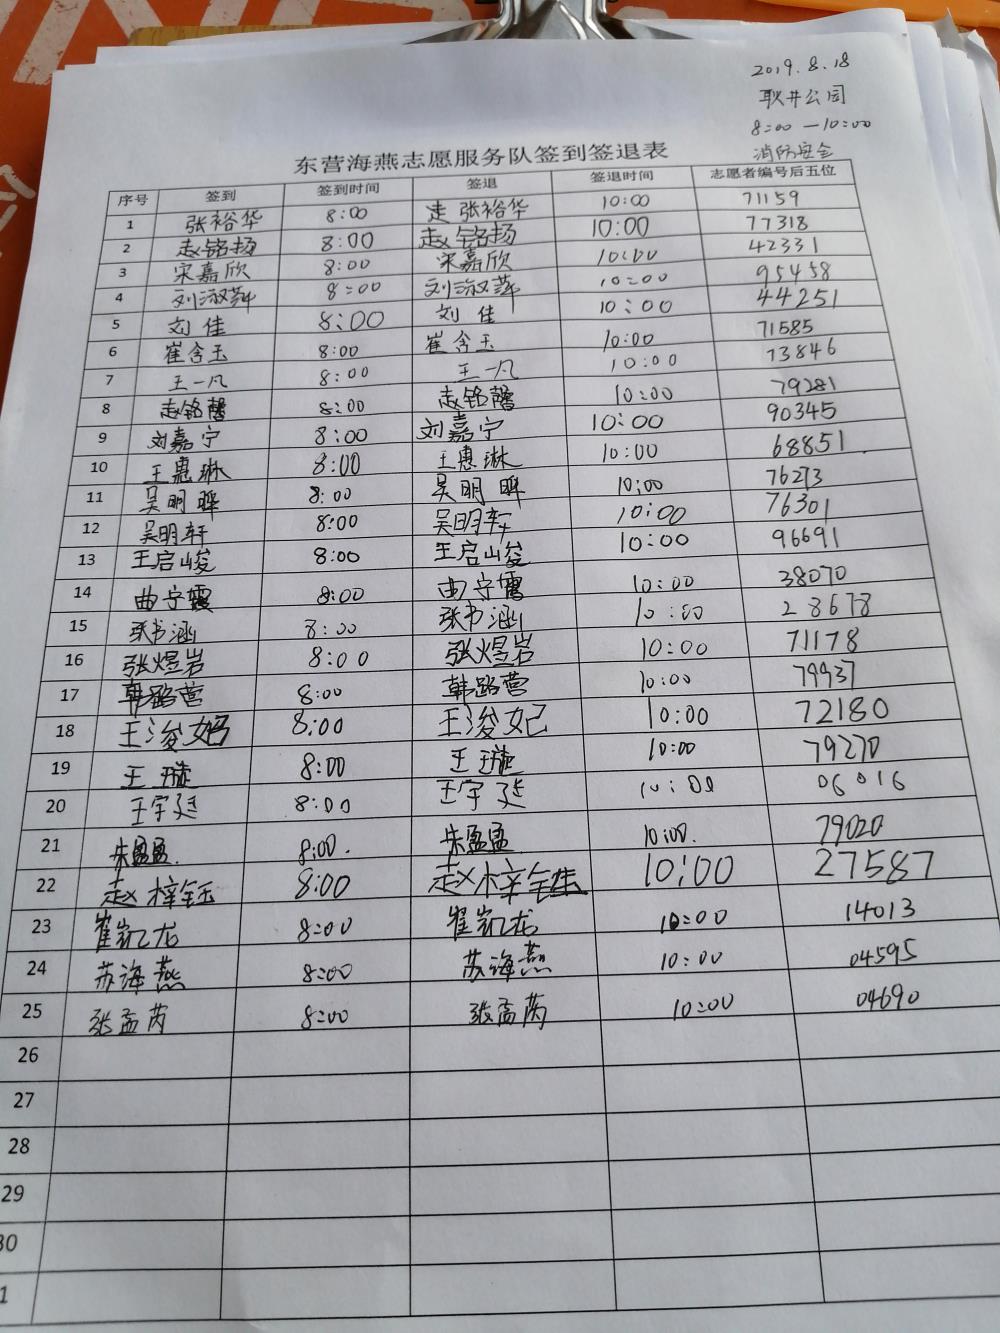 2019.8.18
耿井公园
8:00—10:00
消防安全
东营海燕志愿服务队签到签退表
序号 签到 签到时间 签退 签退时间 志愿者编号后五位
1 张裕华 8:00 走 张裕华 10:00 71159
2 赵铭扬 8:00 赵铭扬 10:00 77318
3 宋嘉欣 8:00 宋嘉欣 10:00 42331
4 刘淑萍 8:00 刘淑萍 10:00 95458
5 刘佳 8:00 刘佳 10:00 44251
6 崔含玉 8:00 崔含玉 10:00 71585
7 王一凡 8:00 王一凡 10:00 73846
8 赵铭馨 8:00 赵铭馨 10:00 79281
9 刘嘉宁 8:00 刘嘉宁 10:00 90345
10 王惠琳 8:00 王惠琳 10:00 68851
11 吴明晔 8:00 吴明晔 10:00 76273
12 吴明轩 8:00 吴明轩 10:00 76301
13 王启峻 8:00 王启峻 10:00 96691
14 曲宁霞 8:00 曲宁霞 10:00 38070
15 张书涵 8:00 张书涵 10:00 28678
16 张煜岩 8:00 张煜岩 10:00 71178
17 韩路营 8:00 韩路营 10:00 79937
18 王浚妃 8:00 王浚妃 10:00 72180
19 王璇 8:00 王璇 10:00 79270
20 王宇廷 8:00 王宇廷 10:00 06016
21 朱孟孟 8:00. 朱孟孟 10:00. 79020
22 赵梓钰 8:00 赵梓钰 10:00 27587
23 崔凯龙 8:00 崔凯龙 10:00 14013
24 苏海燕 8:00 苏海燕 10:00 04595
25 张孟芮 8:00 张孟芮 10:00 04690
26
27
28
29
30
1